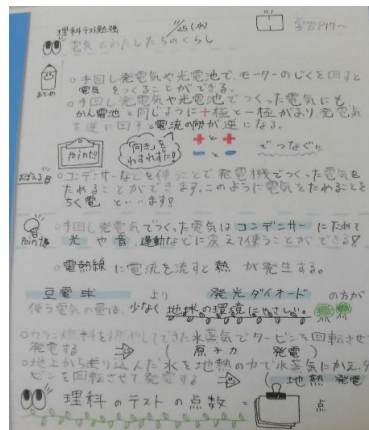 理科テスト勉強 1/25(水) 学習P117〜
電気とわたしたちのくらし
○手回し発電気や光電池で、モーターのじくを回すと
まとめ 電気をつくることができる。
○手回し発電気や光電池でつくった電気にも
かん電池と同じように+極と-極があり、発電気
を逆に回すと電流の向が逆になる。
Point! 「向き」をわすれずに!! +と+ -と- でつなぐ
おぼえる ○コンデンサーなどを使うことで発電機でつくった電気を
ためることができます。このように電気をためることを
ちく電といいます。
Point ○手回し発電気でつくった電気はコンデンサーにためて
光や音、運動などに変えて使うことができる!
○電熱線に電流を流すと熱が発生する。
豆電球より発光ダイオードの方が
使う電気の量は、少なく地球の環境にやさしい。
○ウラン燃料を燃やしてできた水蒸気でタービンを回転させ
発電する → (原子力発電)
○地上から送り込んだ水を地熱の力で水蒸気にかえ、タ
ービンを回転させて発電する → (地熱発電)
理科のテストの点数= 点